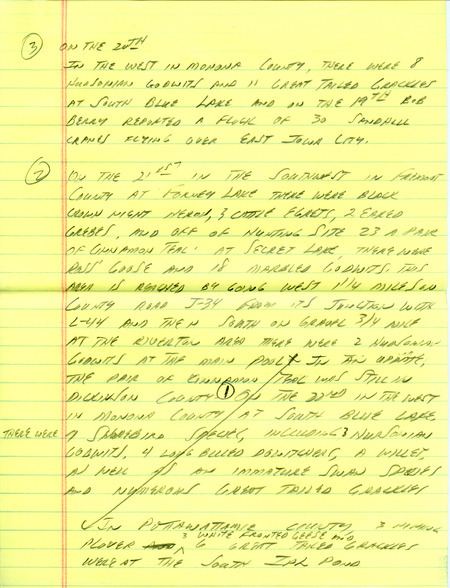 ③ ON THE 20TH
IN THE WEST IN MONONA COUNTY, THERE WERE 8
HUDSONIAN GODWITS AND 11 GREAT TAILED GRACKLES
AT SOUTH BLUE LAKE AND ON THE 19TH BOB
BERRY REPORTED A FLOCK OF 30 SANDHILL
CRANES FLYING OVER EAST IOWA CITY.
② ON THE 21ST IN THE SOUTHWEST IN FREMONT
COUNTY AT FORNEY LAKE THERE WERE BLACK
CROWN NIGHT HERON, 3 LITTLE EGRETS, 2 EARED
GREBES, AND OFF OF HUNTING SITE 23 A PAIR
OF CINNAMON TEAL. AT SECRET LAKE, THERE WERE
ROSS' GOOSE AND 18 MARBLED GODWITS. THIS
AREA IS REACHED BY GOING WEST 1 1/4 MILES ON
COUNTY ROAD J-34 FROM ITS JUNCTION WITH
L-44 AND THEN SOUTH ON GRAVEL 3/4 MILE
AT THE RIVERTON AREA THERE WERE 2 HUDSONIAN
GODWITS AT THE MAIN POOL IN AN UPDATE,
THE PAIR OF CINNAMON TEAL WAS STILL IN
DICKINSON COUNTY ① ON THE 22ND IN THE WEST
IN MONONA COUNTY AT SOUTH BLUE LAKE
THERE WERE 9 SHOREBIRD SPECIES, INCLUDING 3 HUDSONIAN
GODWITS, 4 LONG BILLED DOWITCHERS, A WILLET,
AS WELL AS AN IMMATURE SWAN SPECIES
AND NUMEROUS GREAT TAILED GRACKLES
IN POTTAWATTAMIE COUNTY 3 PIPING
PLOVER 3 WHITE FRONTED GEESE AND 6 GREAT TAILED GRACKLES
WERE AT THE SOUTH IPL POND